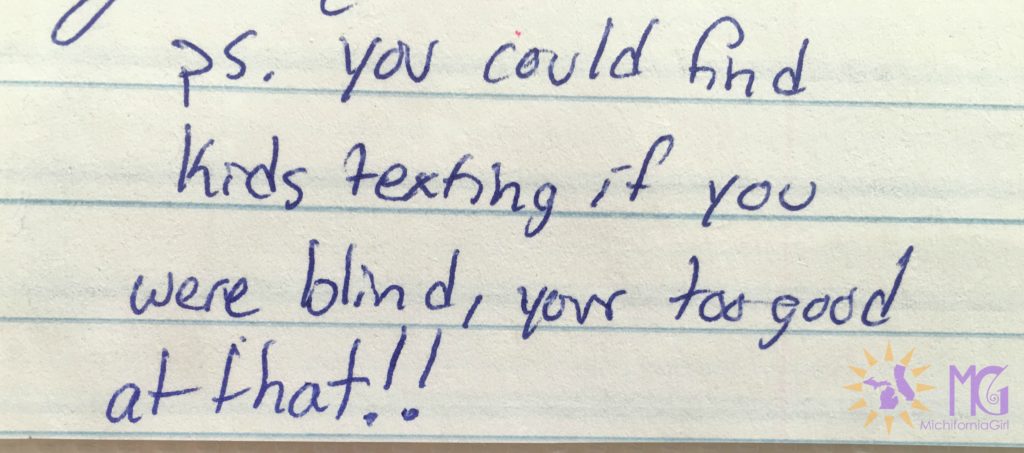 ps. you could find
kids texting if you
were blind, your too good
at that!!
MG
MichiforniaGirl